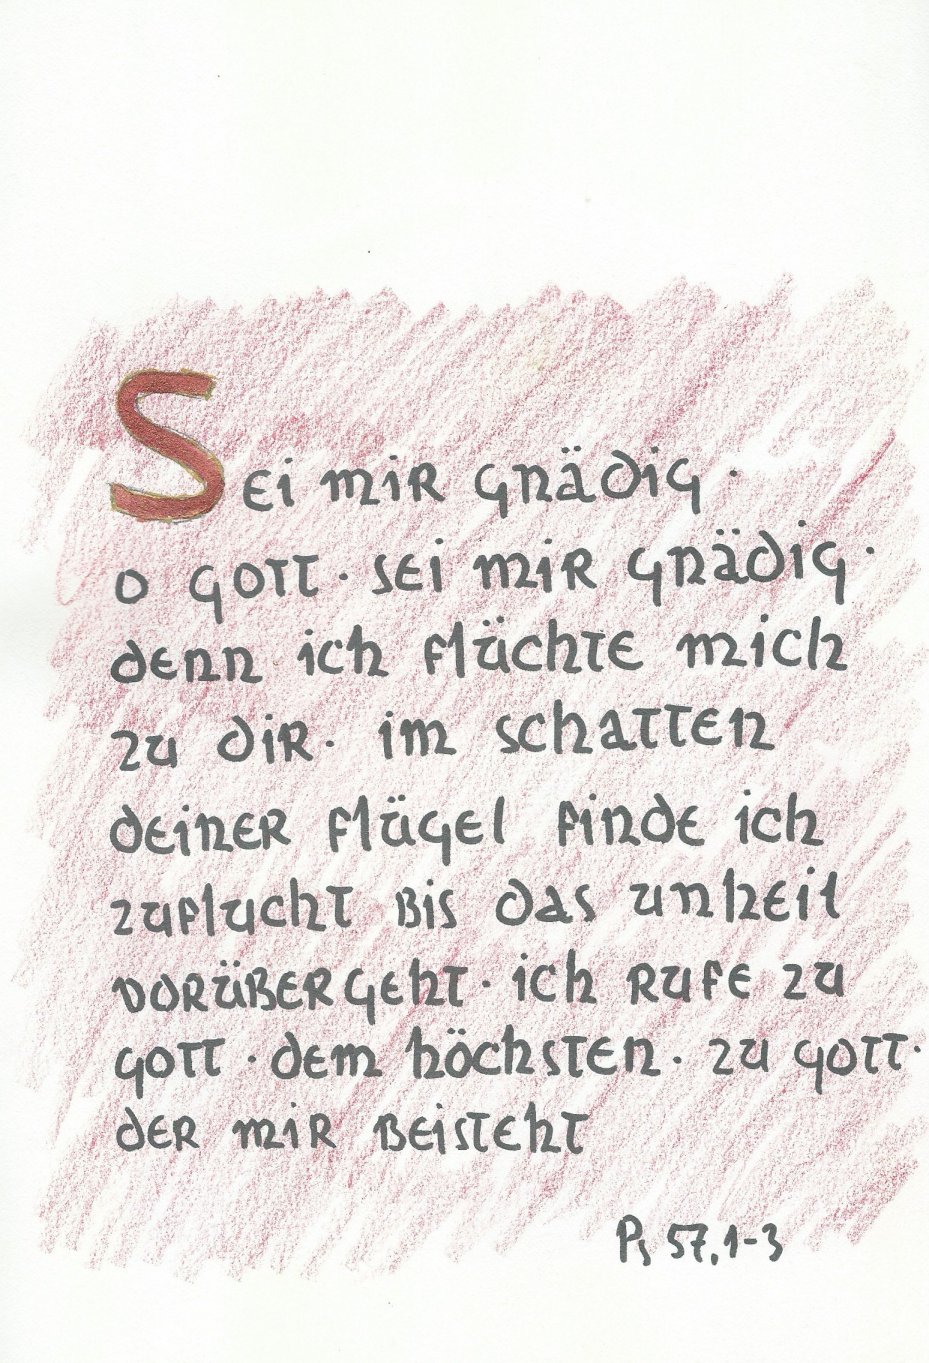 Sei mir gnädig ·
o gott · sei mir gnädig ·
denn ich flüchte mich
zu dir · im schatten
deiner flügel finde ich
zuflucht bis das unheil
vorübergeht · ich rufe zu
gott · dem höchsten · zu gott ·
der mir beisteht
Ps 57,1-3